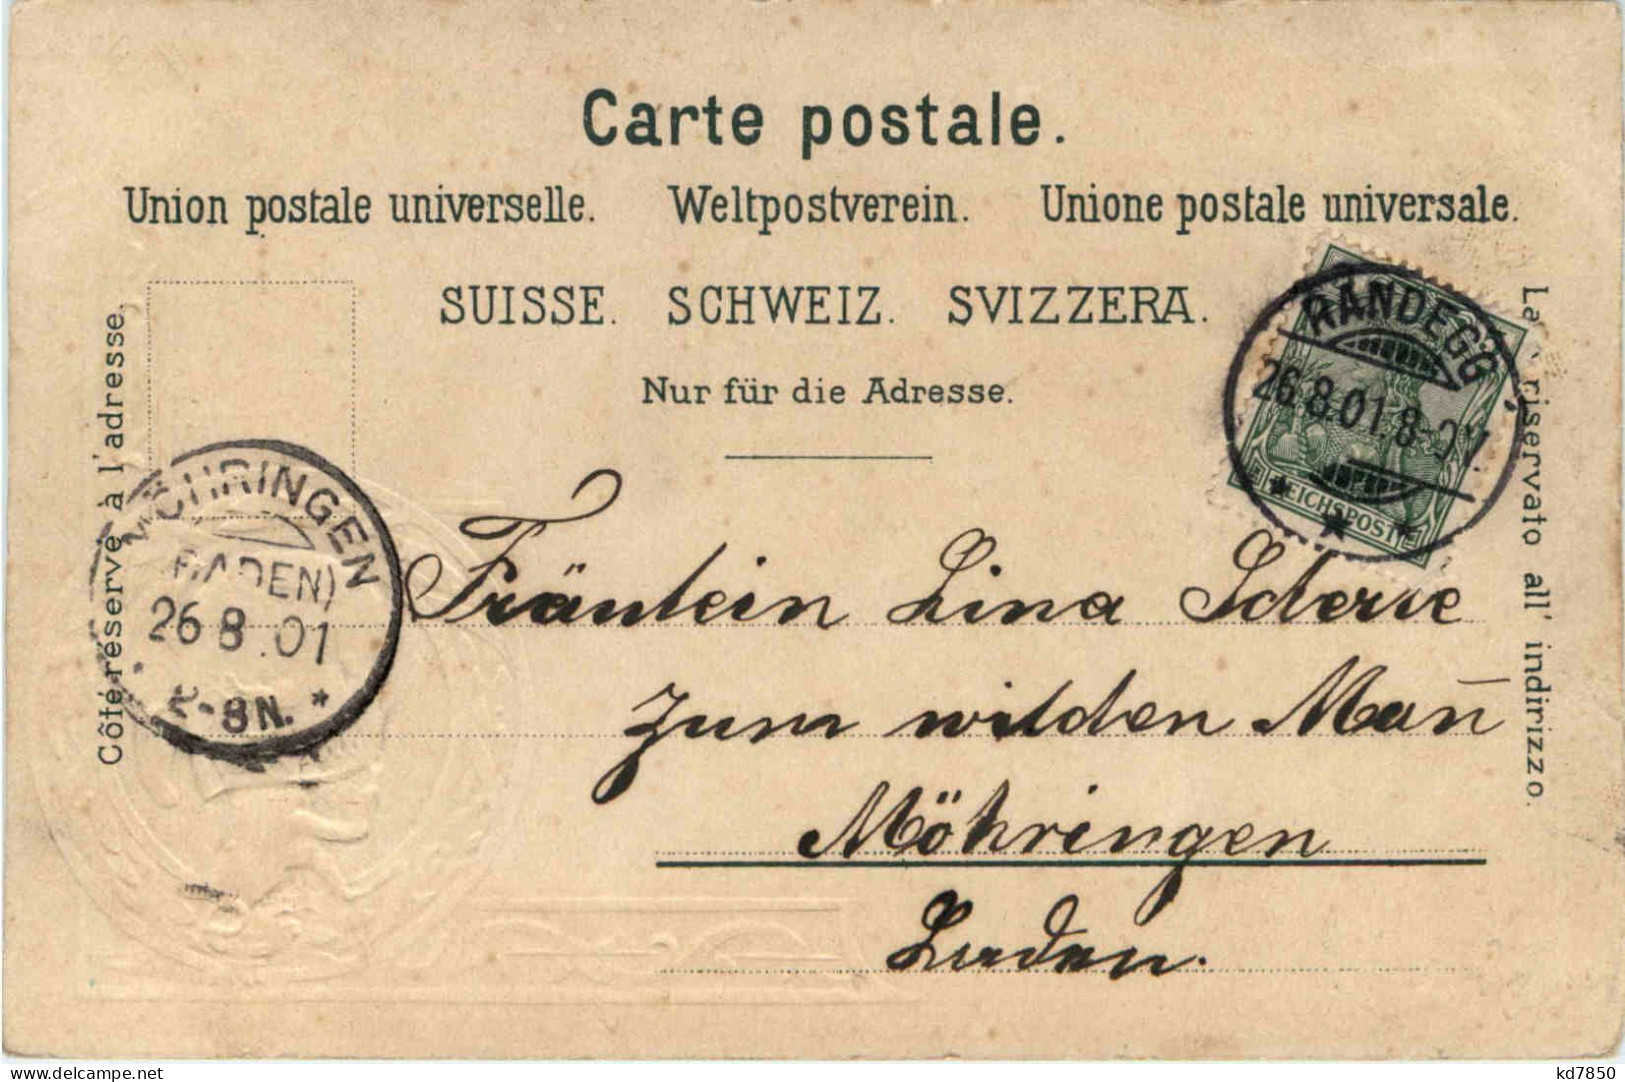 Carte postale.
Union postale universelle. Weltpostverein. Unione postale universale.
SUISSE. SCHWEIZ. SVIZZERA.
Nur für die Adresse.
Côté réservé à l'adresse.
La riservato all' indirizzo.
RANDEGG
26.8.01.8-9V.
REICHSPOST
MÖHRINGEN
(BADEN)
26 8.01
2-8N.
Fräulein Lina
Zum wilden Mañ
Möhringen
Baden.
kd7850